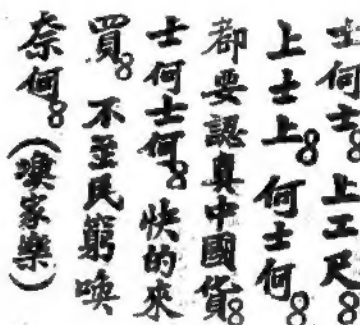 士何士8 上工尺8
上士上8 何士何8
都要認真中國貨8
士何士何8 快的來
買8 不至民窮喚
奈何8（漢家樂）